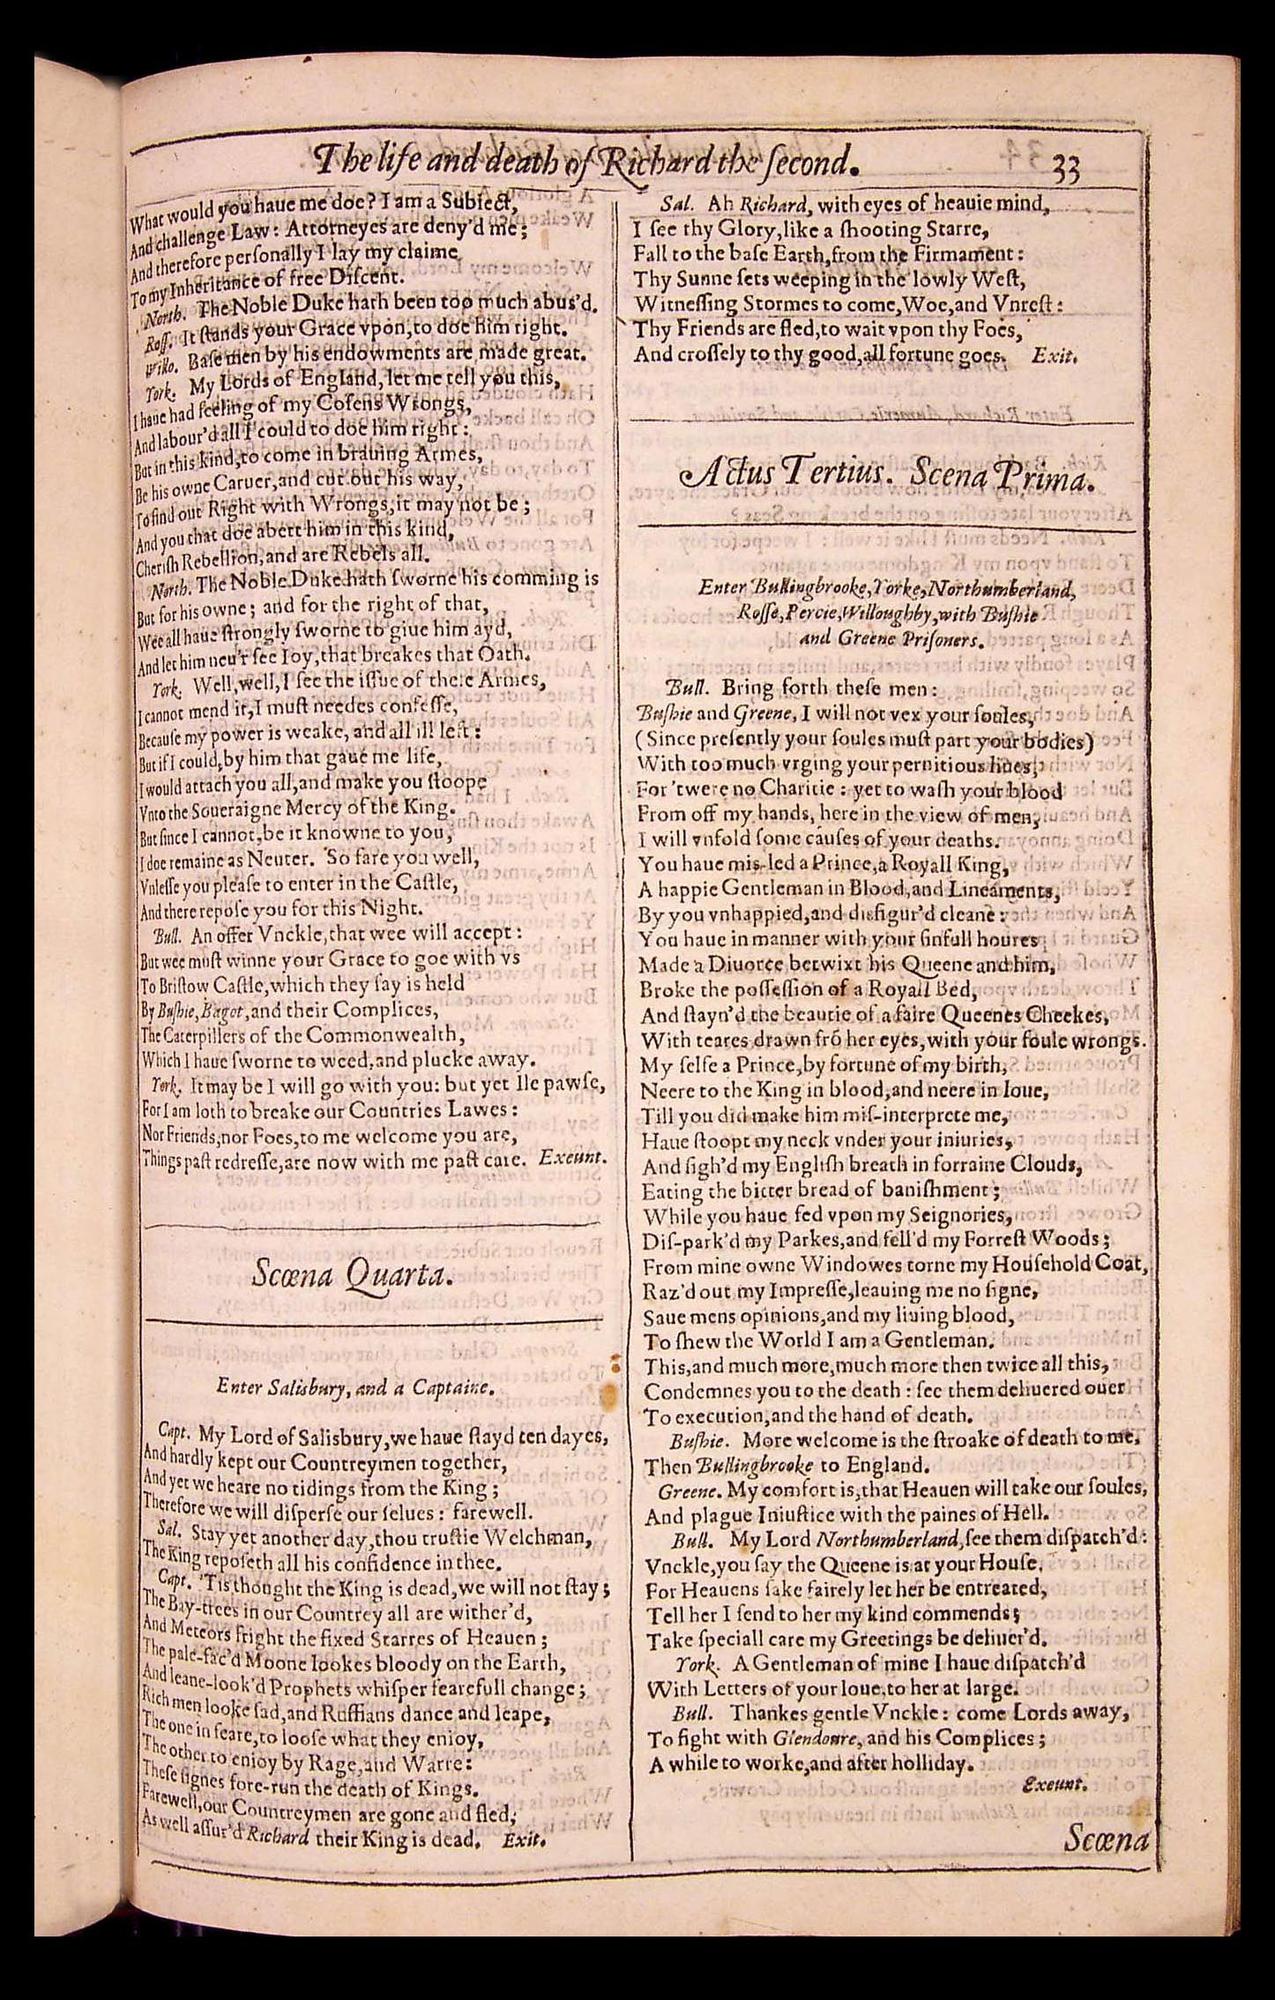 The life and death of Richard the second. 33
What would you haue me doe? I am a Subiect,
And challenge Law: Attorneyes are deny'd me;
And therefore personally I lay my claime
To my Inheritance of free Discent.
North. The Noble Duke hath been too much abus'd.
Ross. It stands your Grace vpon, to doe him right.
Willo. Base men by his endowments are made great.
York. My Lords of England, let me tell you this,
I haue had feeling of my Cosens Wrongs,
And labour'd all I could to doe him right:
But in this kind, to come in brauing Armes,
Be his owne Caruer, and cut out his way,
To find out Right with Wrongs, it may not be;
And you that doe abett him in this kind,
Cherish Rebellion, and are Rebels all.
North. The Noble Duke hath sworne his comming is
But for his owne; and for the right of that,
Wee all haue strongly sworne to giue him ayd,
And let him neu'r see Ioy, that breakes that Oath.
York. Well, well, I see the issue of these Armes,
I cannot mend it, I must needes confesse,
Because my power is weake, and all ill left:
But if I could, by him that gaue me life,
I would attach you all, and make you stoope
Vnto the Soueraigne Mercy of the King.
But since I cannot, be it knowne to you,
I doe remaine as Neuter. So fare you well,
Vnlesse you please to enter in the Castle,
And there repose you for this Night.
Bull. An offer Vnckle, that wee will accept:
But wee must winne your Grace to goe with vs
To Bristow Castle, which they say is held
By Bushie, Bagot, and their Complices,
The Caterpillers of the Commonwealth,
Which I haue sworne to weed, and plucke away.
York. It may be I will go with you: but yet Ile pawse,
For I am loth to breake our Countries Lawes:
Nor Friends, nor Foes, to me welcome you are,
Things past redresse, are now with me past care. Exeunt.
Scœna Quarta.
Enter Salisbury, and a Captaine.
Capt. My Lord of Salisbury, we haue stayd ten dayes,
And hardly kept our Countreymen together,
And yet we heare no tidings from the King;
Therefore we will disperse our selues: farewell.
Sal. Stay yet another day, thou trustie Welchman,
The King reposeth all his confidence in thee.
Capt. 'Tis thought the King is dead, we will not stay;
The Bay-trees in our Countrey all are wither'd,
And Meteors fright the fixed Starres of Heauen;
The pale-fac'd Moone lookes bloody on the Earth,
And leane-look'd Prophets whisper fearefull change;
Rich men looke sad, and Ruffians dance and leape,
The one in feare, to loose what they enioy,
The other to enioy by Rage, and Warre:
These signes fore-run the death of Kings.
Farewell, our Countreymen are gone and fled,
As well assur'd Richard their King is dead. Exit.
Sal. Ah Richard, with eyes of heauie mind,
I see thy Glory, like a shooting Starre,
Fall to the base Earth, from the Firmament:
Thy Sunne sets weeping in the lowly West,
Witnessing Stormes to come, Woe, and Vnrest:
Thy Friends are fled, to wait vpon thy Foes,
And crossely to thy good, all fortune goes. Exit.
Actus Tertius. Scena Prima.
Enter Bullingbrooke, Yorke, Northumberland,
Rosse, Percie, Willoughby, with Bushie
and Greene Prisoners.
Bull. Bring forth these men:
Bushie and Greene, I will not vex your soules,
(Since presently your soules must part your bodies)
With too much vrging your pernitious liues,
For 'twere no Charitie: yet to wash your blood
From off my hands, here in the view of men,
I will vnfold some causes of your deaths.
You haue mis-led a Prince, a Royall King,
A happie Gentleman in Blood, and Lineaments,
By you vnhappied, and disfigur'd cleane:
You haue in manner with your sinfull houres
Made a Diuorce betwixt his Queene and him,
Broke the possession of a Royall Bed,
And stayn'd the beautie of a faire Queenes Cheekes,
With teares drawn frō her eyes, with your foule wrongs.
My selfe a Prince, by fortune of my birth,
Neere to the King in blood, and neere in loue,
Till you did make him mis-interprete me,
Haue stoopt my neck vnder your iniuries,
And sigh'd my English breath in forraine Clouds,
Eating the bitter bread of banishment;
While you haue fed vpon my Seignories,
Dis-park'd my Parkes, and fell'd my Forrest Woods;
From mine owne Windowes torne my Household Coat,
Raz'd out my Impresse, leauing me no signe,
Saue mens opinions, and my liuing blood,
To shew the World I am a Gentleman.
This, and much more, much more then twice all this,
Condemnes you to the death: see them deliuered ouer
To execution, and the hand of death.
Bushie. More welcome is the stroake of death to me,
Then Bullingbrooke to England.
Greene. My comfort is, that Heauen will take our soules,
And plague Iniustice with the paines of Hell.
Bull. My Lord Northumberland, see them dispatch'd:
Vnckle, you say the Queene is at your House,
For Heauens sake fairely let her be entreated,
Tell her I send to her my kind commends;
Take speciall care my Greetings be deliuer'd.
York. A Gentleman of mine I haue dispatch'd
With Letters of your loue, to her at large.
Bull. Thankes gentle Vnckle: come Lords away,
To fight with Glendoure, and his Complices;
A while to worke, and after holliday.
Exeunt.
Scœna